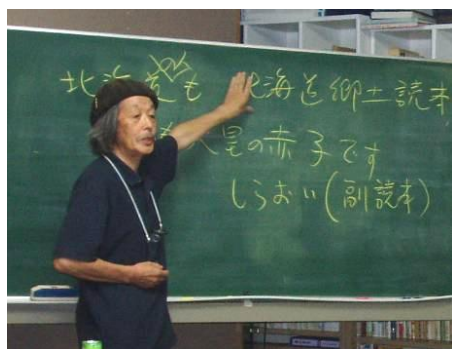 北海道も 北海道郷土読本
皇の赤子です
しらおい(副読本)